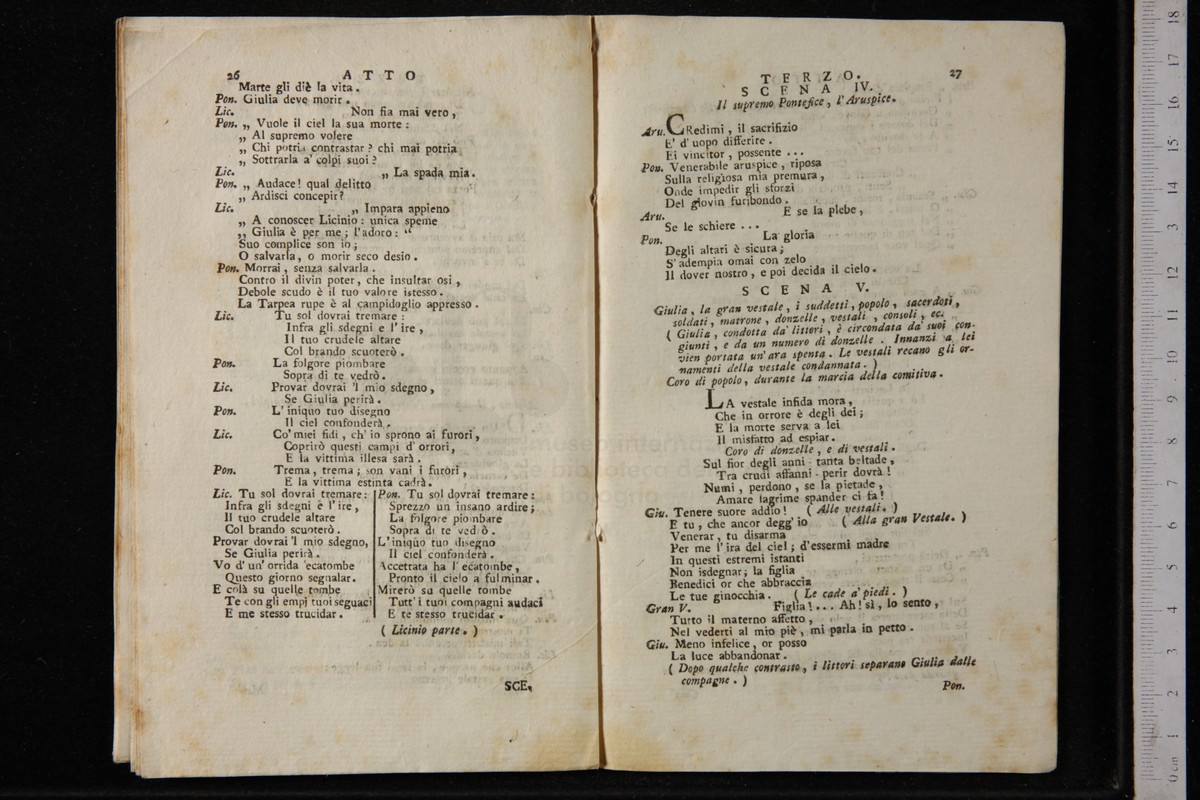 26 ATTO
Marte gli diè la vita.
Pon. Giulia deve morir.
Lic. Non fia mai vero,
Pon. „ Vuole il ciel la sua morte:
„ Al supremo volere
„ Chi potria contrastar? chi mai potria
„ Sottrarla a' colpi suoi?
Lic. „ La spada mia.
Pon. „ Audace! qual delitto
„ Ardisci concepir?
Lic. „ Impara appieno
„ A conoscer Licinio: unica speme
„ Giulia è per me; l'adoro: “
Suo complice son io;
O salvarla, o morir seco desio.
Pon. Morrai, senza salvarla.
Contro il divin poter, che insultar osi,
Debole scudo è il tuo valore istesso.
La Tarpea rupe è al campidoglio appresso.
Lic. Tu sol dovrai tremare:
Infra gli sdegni e l'ire,
Il tuo crudele altare
Col brando scuoterò.
Pon. La folgore piombare
Sopra di te vedrò.
Lic. Provar dovrai 'l mio sdegno,
Se Giulia perirà.
Pon. L'iniquo tuo disegno
Il ciel confonderà.
Lic. Co' miei fidi, ch'io sprono ai furori,
Coprirò questi campi d'orrori,
E la vittima illesa sarà.
Pon. Trema, trema; son vani i furori,
E la vittima estinta cadrà.
Lic. Tu sol dovrai tremare:
Infra gli sdegni e l'ire,
Il tuo crudele altare
Col brando scuoterò.
Provar dovrai 'l mio sdegno,
Se Giulia perirà.
Vo d'un' orrida ecatombe
Questo giorno segnalar.
E colà su quelle tombe
Te con gli empj tuoi seguaci
E me stesso trucidar.
Pon. Tu sol dovrai tremare:
Sprezzo un insano ardire;
La folgore piombare
Sopra di te ved ò.
L'iniquo tuo disegno
Il ciel confonderà.
Accettata ha l'ecatombe,
Pronto il cielo a fulminar.
Mirerò su quelle tombe
Tutt'i tuoi compagni audaci
E te stesso trucidar.
( Licinio parte. )
SCE,
TERZO. 27
SCENA IV.
Il supremo Pontefice, l'Aruspice.
Aru. CRedimi, il sacrifizio
E' d'uopo differire.
Ei vincitor, possente ...
Pon. Venerabile aruspice, riposa
Sulla religiosa mia premura,
Onde impedir gli sforzi
Del giovin furibondo.
Aru. E se la plebe,
Se le schiere ...
Pon. La gloria
Degli altari è sicura;
S'adempia omai con zelo
Il dover nostro, e poi decida il cielo.
SCENA V.
Giulia, la gran vestale, i suddetti, popolo, sacerdoti,
soldati, matrone, donzelle, vestali, consoli, ec.
( Giulia, condotta da' littori, è circondata da' suoi con-
giunti, e da un numero di donzelle. Innanzi a lei
vien portata un'ara spenta. Le vestali recano gli or-
namenti della vestale condannata. )
Coro di popolo, durante la marcia della comitiva.
LA vestale infida mora,
Che in orrore è degli dei;
E la morte serva a lei
Il misfatto ad espiar.
Coro di donzelle, e di vestali.
Sul fior degli anni tanta beltade,
Tra crudi affanni perir dovrà!
Numi, perdono, se la pietade,
Amare lagrime spander ci fa!
Giu. Tenere suore addio! ( Alle vestali. )
E tu, che ancor degg'io ( Alla gran Vestale. )
Venerar, tu disarma
Per me l'ira del ciel; d'essermi madre
In questi estremi istanti
Non isdegnar; la figlia
Benedici or che abbraccia
Le tue ginocchia. ( Le cade a' piedi. )
Gran V. Figlia!... Ah! sì, lo sento,
Tutto il materno affetto,
Nel vederti al mio piè, mi parla in petto.
Giu. Meno infelice, or posso
La luce abbandonar.
( Dopo qualche contrasto, i littori separano Giulia dalle
compagne. )
Pon.